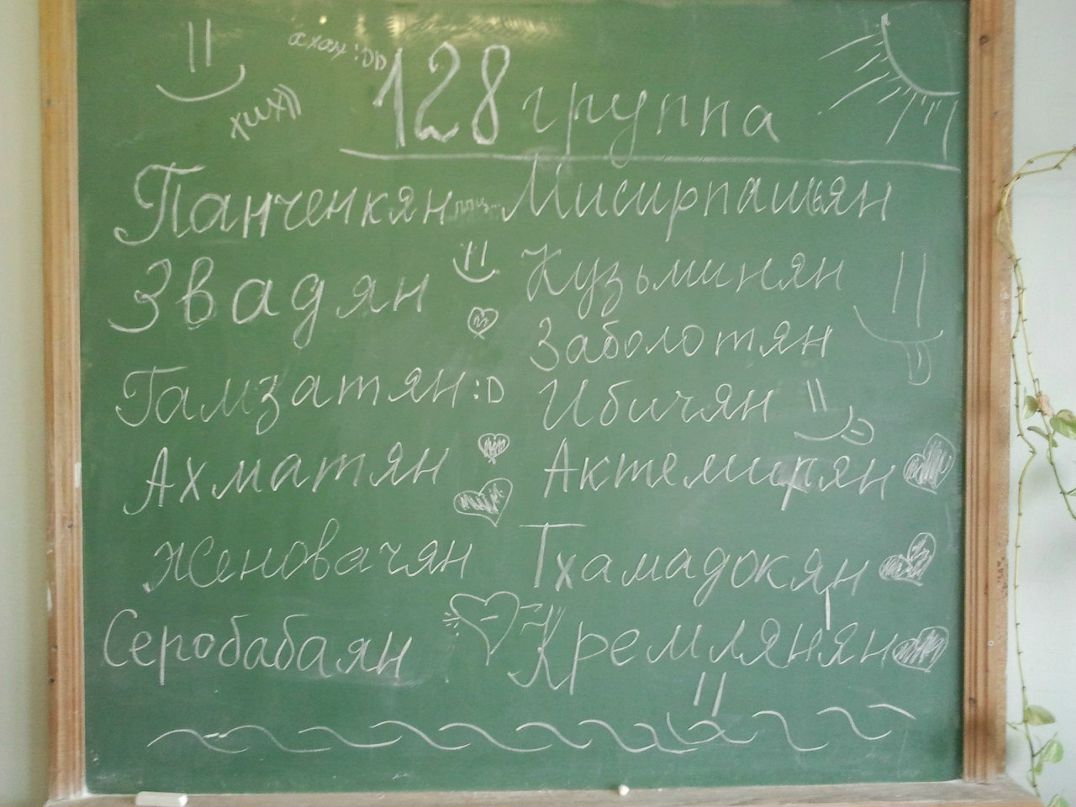 ахах :DD
128 группа
хих))
Панченкян Мисирпашьян
Звадян Кузьминян
Заболотян
Гамзатян :D Ибичян
Ахматян Актемирян
Женовачян Тхамадокян
Серобабаян Кремлянян